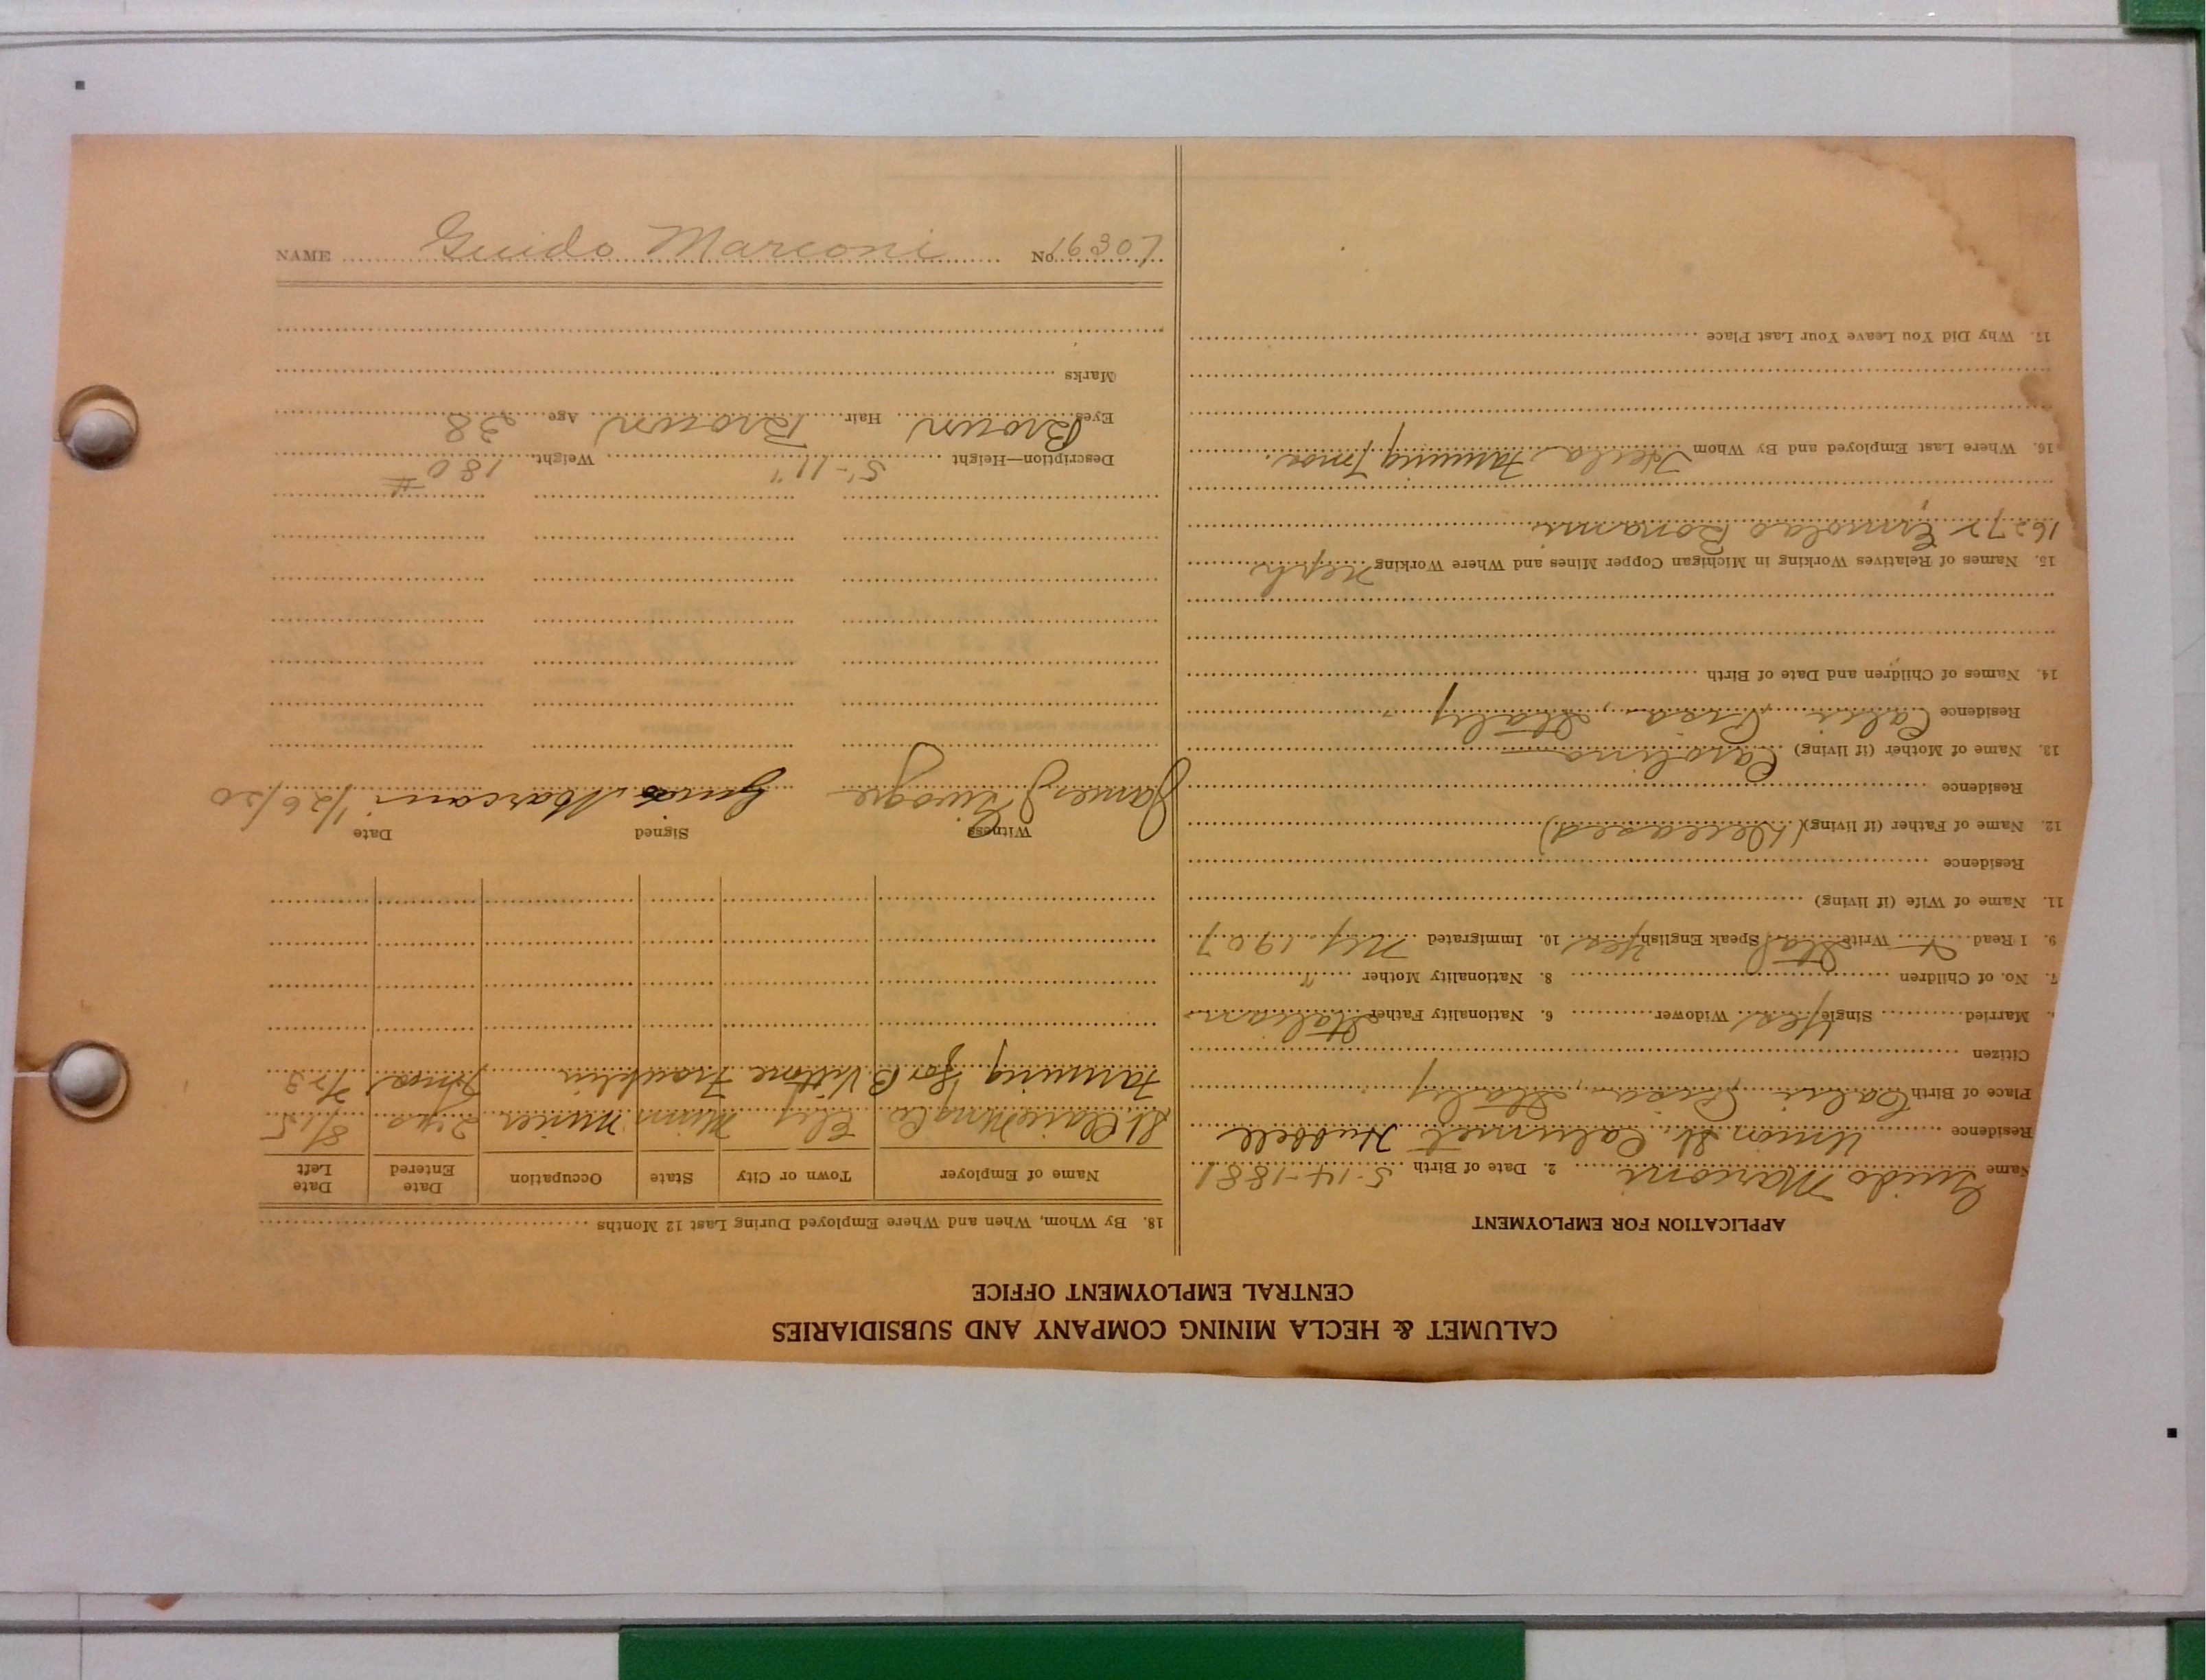 CALUMET & HECLA MINING COMPANY AND SUBSIDIARIES
CENTRAL EMPLOYMENT OFFICE
APPLICATION FOR EMPLOYMENT
Name Guido Marconi 2. Date of Birth 5-14-1881
Residence Union St. Calumet Hubbell
Place of Birth Calci, Pisa, Italy
Citizen
Married Single Yes Widower 6. Nationality Father Italian
7. No. of Children 8. Nationality Mother "
9. I Read Write Ital Speak English Yes 10. Immigrated N.Y. 1907
11. Name of Wife (if living)
Residence
12. Name of Father (if living) (Deceased)
Residence
13. Name of Mother (if living) Carolina
Residence Calci Pisa, Italy
14. Names of Children and Date of Birth
15. Names of Relatives Working in Michigan Copper Mines and Where Working Neph.
Bonanni
16. Where Last Employed and By Whom Hecla Farming
17. Why Did You Leave Your Last Place
18. By Whom, When and Where Employed During Last 12 Months
Name of Employer Town or City State Occupation Date Entered Date Left
St. Claire Mng Co Ely Minn Miner 2 yrs 8/1/5
Farming for B Vittone Franklin
Witness Signed Date
James Guido Marconi 1/26/20
Description—Height 5'-11" Weight 180 #
Eyes Brown Hair Brown Age 38
Marks
NAME Guido Marconi No. 16307